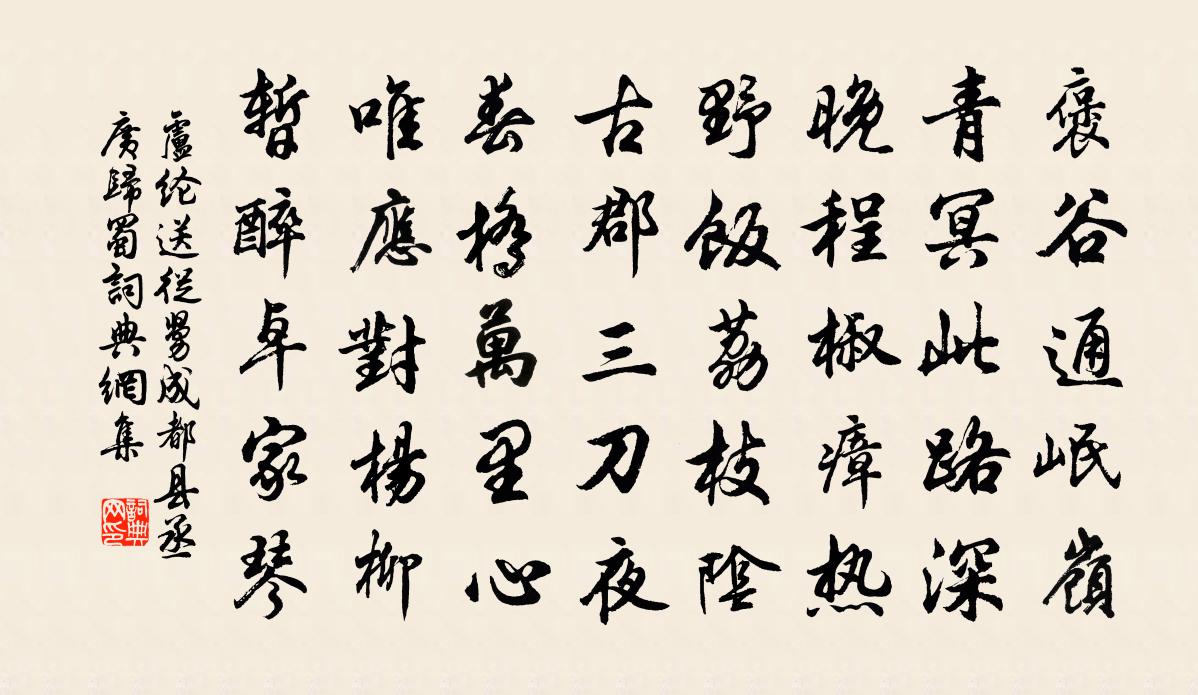 褒谷通岷嶺
青冥此路深
晚程椒瘴熱
野飯荔枝陰
古郡三刀夜
春橋萬里心
唯應對楊柳
暫醉卓家琴
盧纶送從舅成都县丞
广歸蜀詞典網集
詞典
网印